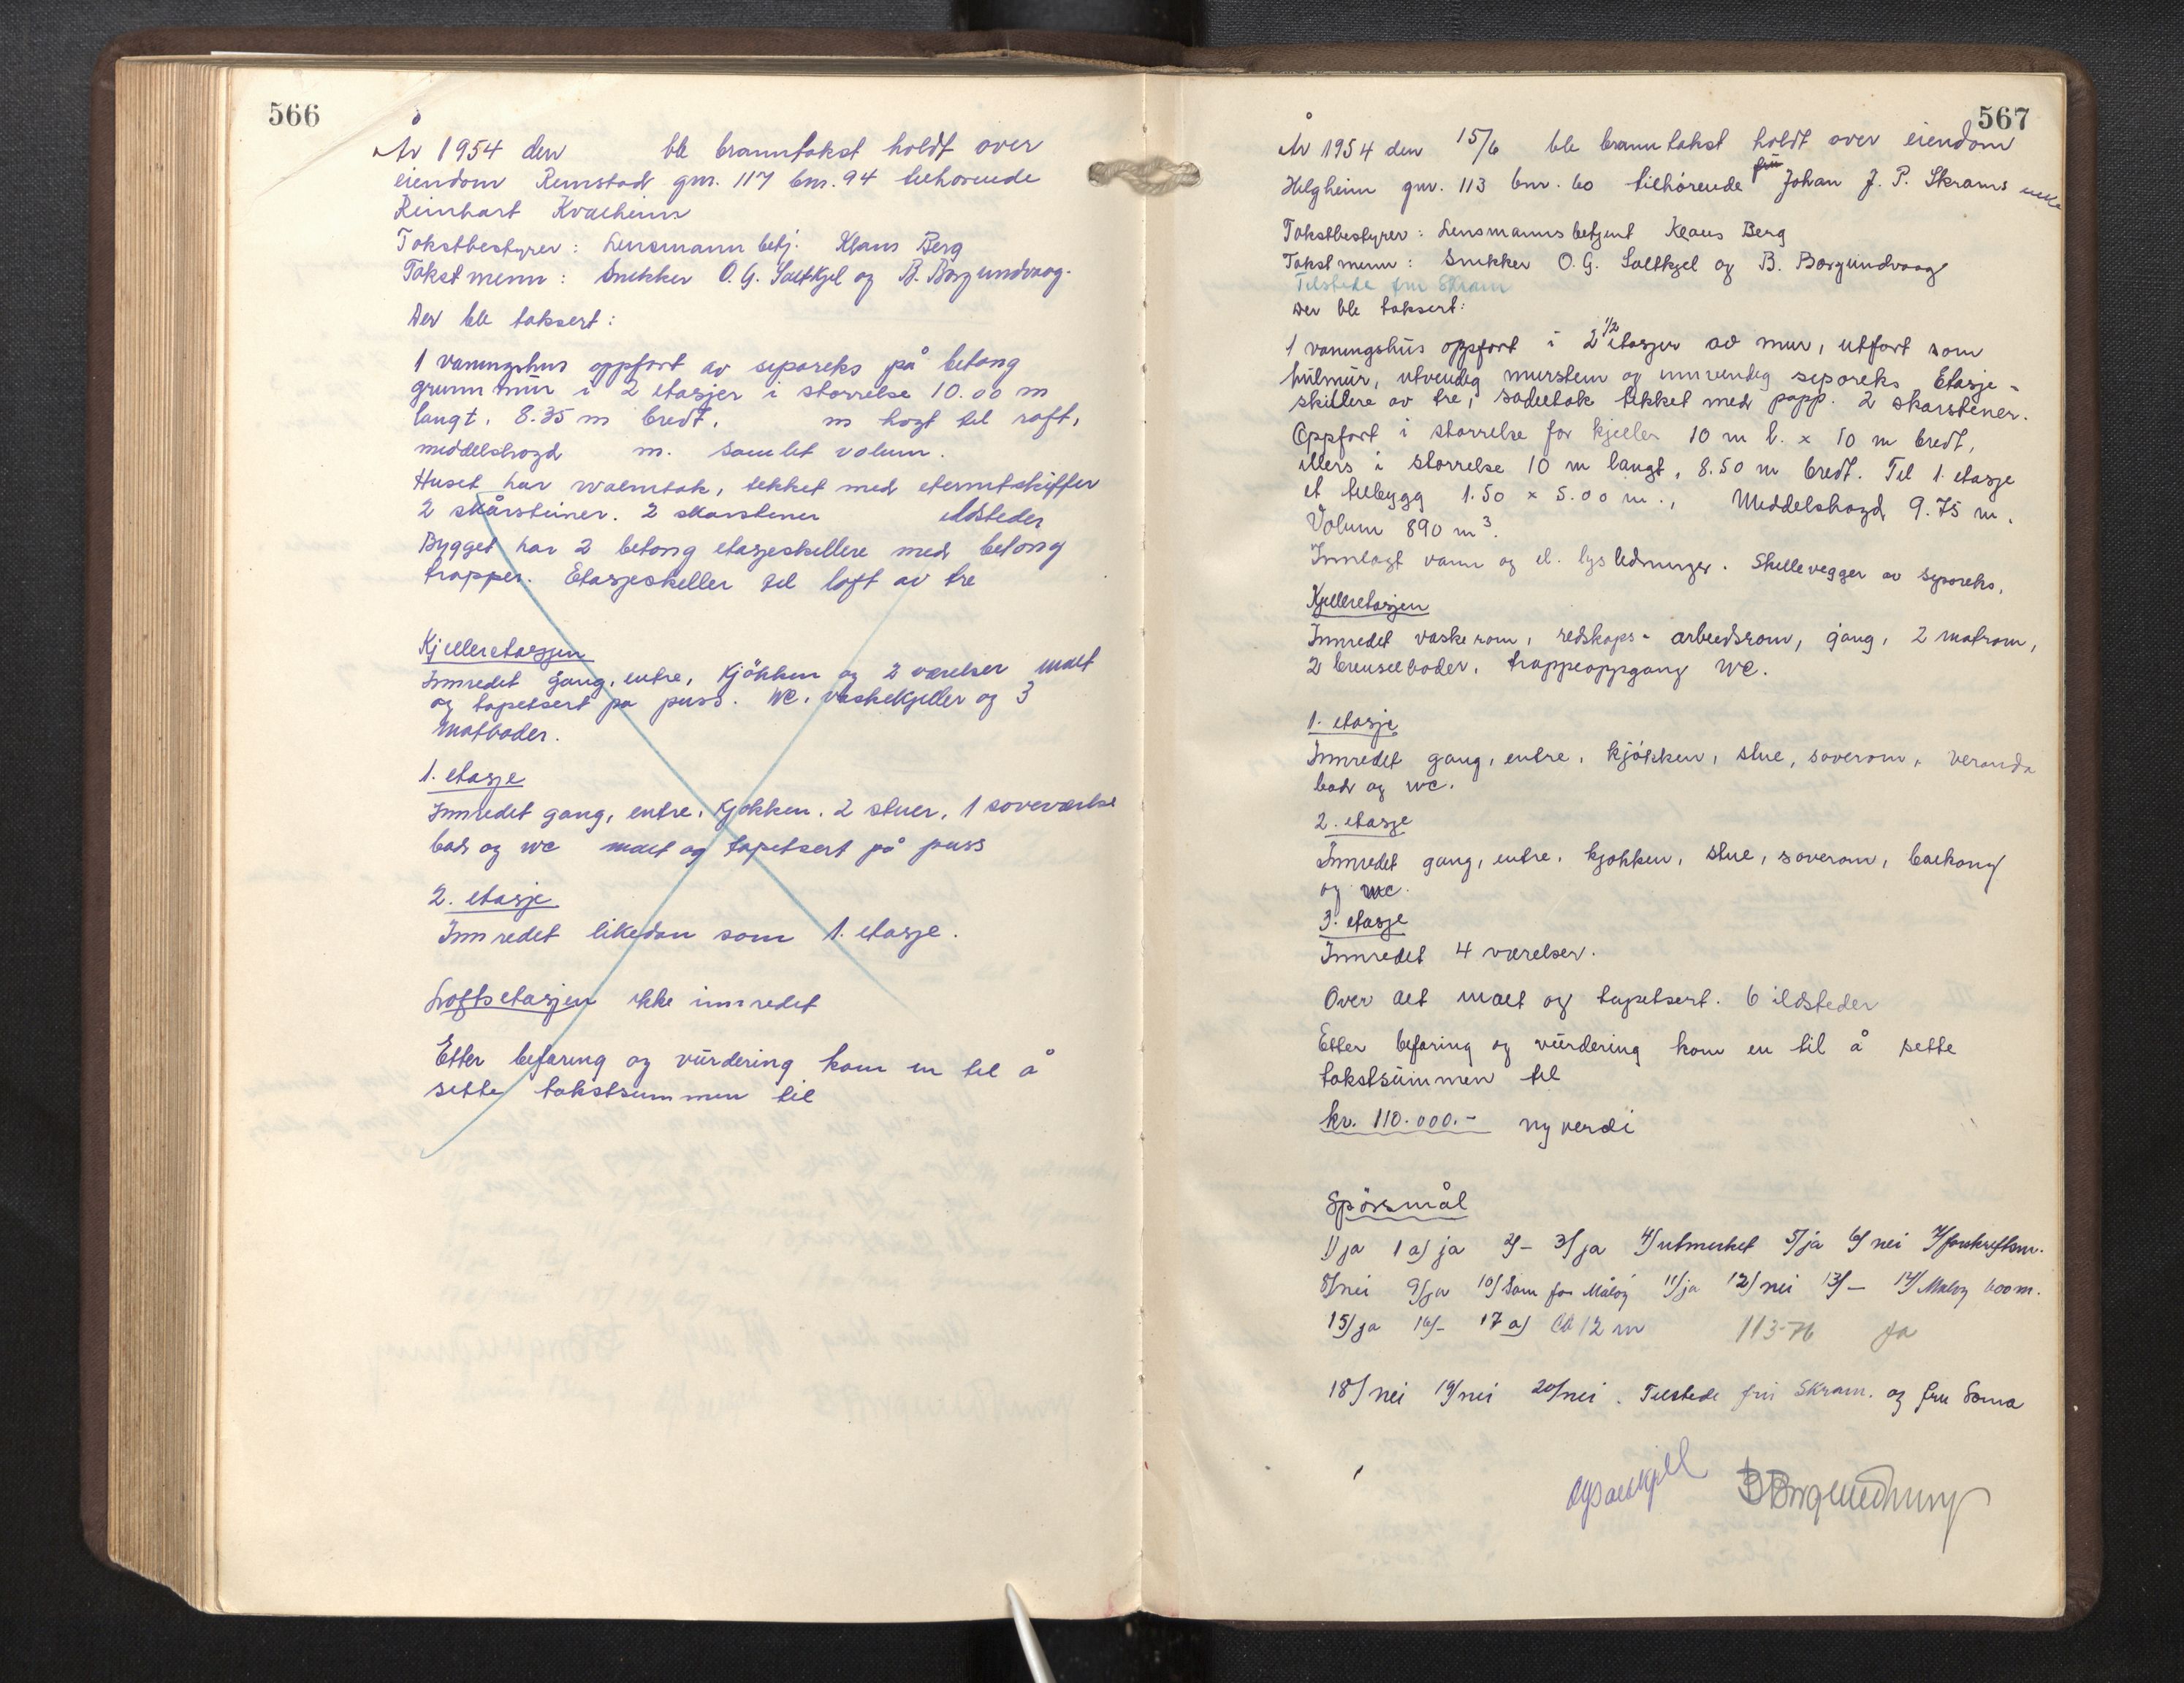 566
År 1954 den ble branntakst holdt over
eiendom Rimstad gnr. 117 bnr. 94 tilhørende
Reinhart Kvalheim
Takstbestyrer: Lensmannbetj. Klaus Berg
Takstmenn: Snekker O. G. Saltkjel og B. Borgundvaag.
Der ble taksert:
1 våningshus oppført av siporeks på betong
grunnmur i 2 etasjer i størrelse 10.00 m
langt, 8.35 m bredt, m høgt til raft,
middelshøgd m. Samlet volum.
Huset har valmtak, tekket med eternitskiffer
2 skårsteiner. 2 skorstener ildsteder
Bygget har 2 betong etasjeskillere med betong
trapper. Etasjeskiller til loft av tre
Kjelleretasjen
Innredet gang, entre, kjökken og 2 værelser malt
og tapetsert på puss. WC, vaskekjeller og 3
matboder.
1. etasje
Innredet gang, entre, kjøkken, 2 stuer, 1 soveværelse
bad og wc malt og tapetsert på puss
2. etasje
Innredet likedan som 1. etasje.
Loftsetasjen ikke innredet
Etter befaring og vurdering kom en til å
sette takstsummen til
567
År 1954 den 15/6 ble branntakst holdt over eiendom
Helgheim gnr. 113 bnr. 60 tilhørende fru Johan J. P. Skrams enke
Takstbestyrer: Lensmannsbetjent Klaus Berg
Takstmenn: Snekker O. G. Saltkjel og B. Borgundvaag
Tilstede fru Skram
Der ble taksert:
1 våningshus oppført i 2 1/2 etasjer av mur, utført som
hulmur, utvendig murstein og innvendig siporeks. Etasje-
skillere av tre, sadeltak tekket med papp. 2 skorstener.
Oppført i størrelse for kjeller 10 m l. x 10 m bredt,
ellers i størrelse 10 m langt, 8.50 m bredt. Til 1. etasje
et tilbygg 1.50 x 5.00 m., Middelshøgd 9.75 m.
Volum 890 m³.
Innlagt vann og el. lysledninger. Skillevegger av siporeks.
Kjelleretasjen
Innredet vaskerom, redskaps- arbeidsrom, gang, 2 matrom,
2 brenselboder, trappeoppgang WC.
1. etasje
Innredet gang, entre, kjökken, stue, soverom, veranda
bad og wc.
2. etasje
Innredet gang, entre, kjøkken, stue, soverom, balkong
og wc.
3. etasje
Innredet 4 værelser.
Over alt malt og tapetsert. 6 ildsteder
Etter befaring og vurdering kom en til å sette
takstsummen til
kr. 110.000.- nyverdi
Spörsmål
1) ja 1 a) ja 2) - 3) ja 4) utmerket 5) ja 6) nei 7) forskriftsm.
8) nei 9) ja 10) Som for Måløy 11) ja 12) nei 13) - 14) Måløy 600 m.
15) ja 16) - 17 a) 12 m 113-76 ja
18) nei 19) nei 20) nei. Tilstede fru Skram. og fru
OGSaltkjel BBorgundvaag